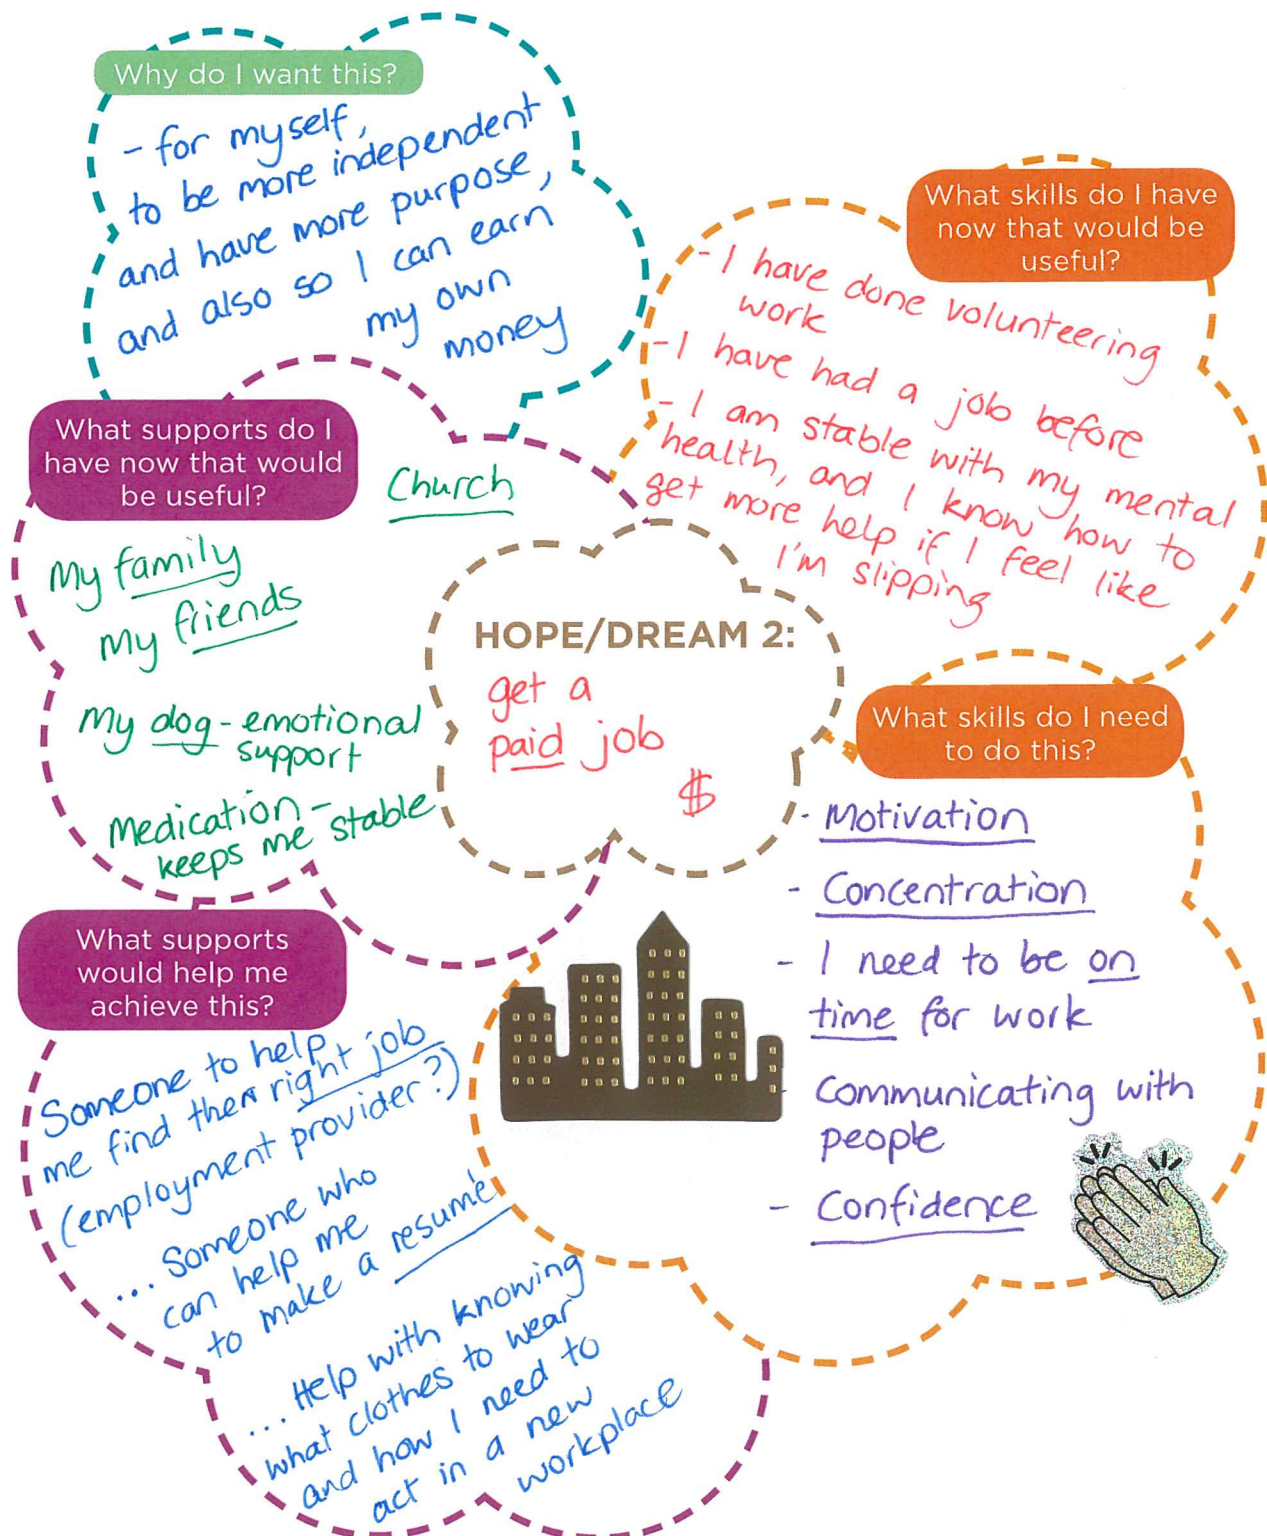 Why do I want this?
- for myself,
to be more independent
and have more purpose,
and also so I can earn
my own
money
What skills do I have
now that would be
useful?
- I have done volunteering
work
- I have had a job before
- I am stable with my mental
health, and I know how to
get more help if I feel like
I'm slipping
What supports do I
have now that would
be useful?
Church
My family
My friends
My dog - emotional
support
Medication -
keeps me stable
HOPE/DREAM 2:
get a
paid job
$
What skills do I need
to do this?
- Motivation
- Concentration
- I need to be on
time for work
- Communicating with
people
- Confidence
What supports
would help me
achieve this?
Someone to help
me find the right job
(employment provider?)
... Someone who
can help me
to make a resumé
... Help with knowing
what clothes to wear
and how I need to
act in a new
workplace